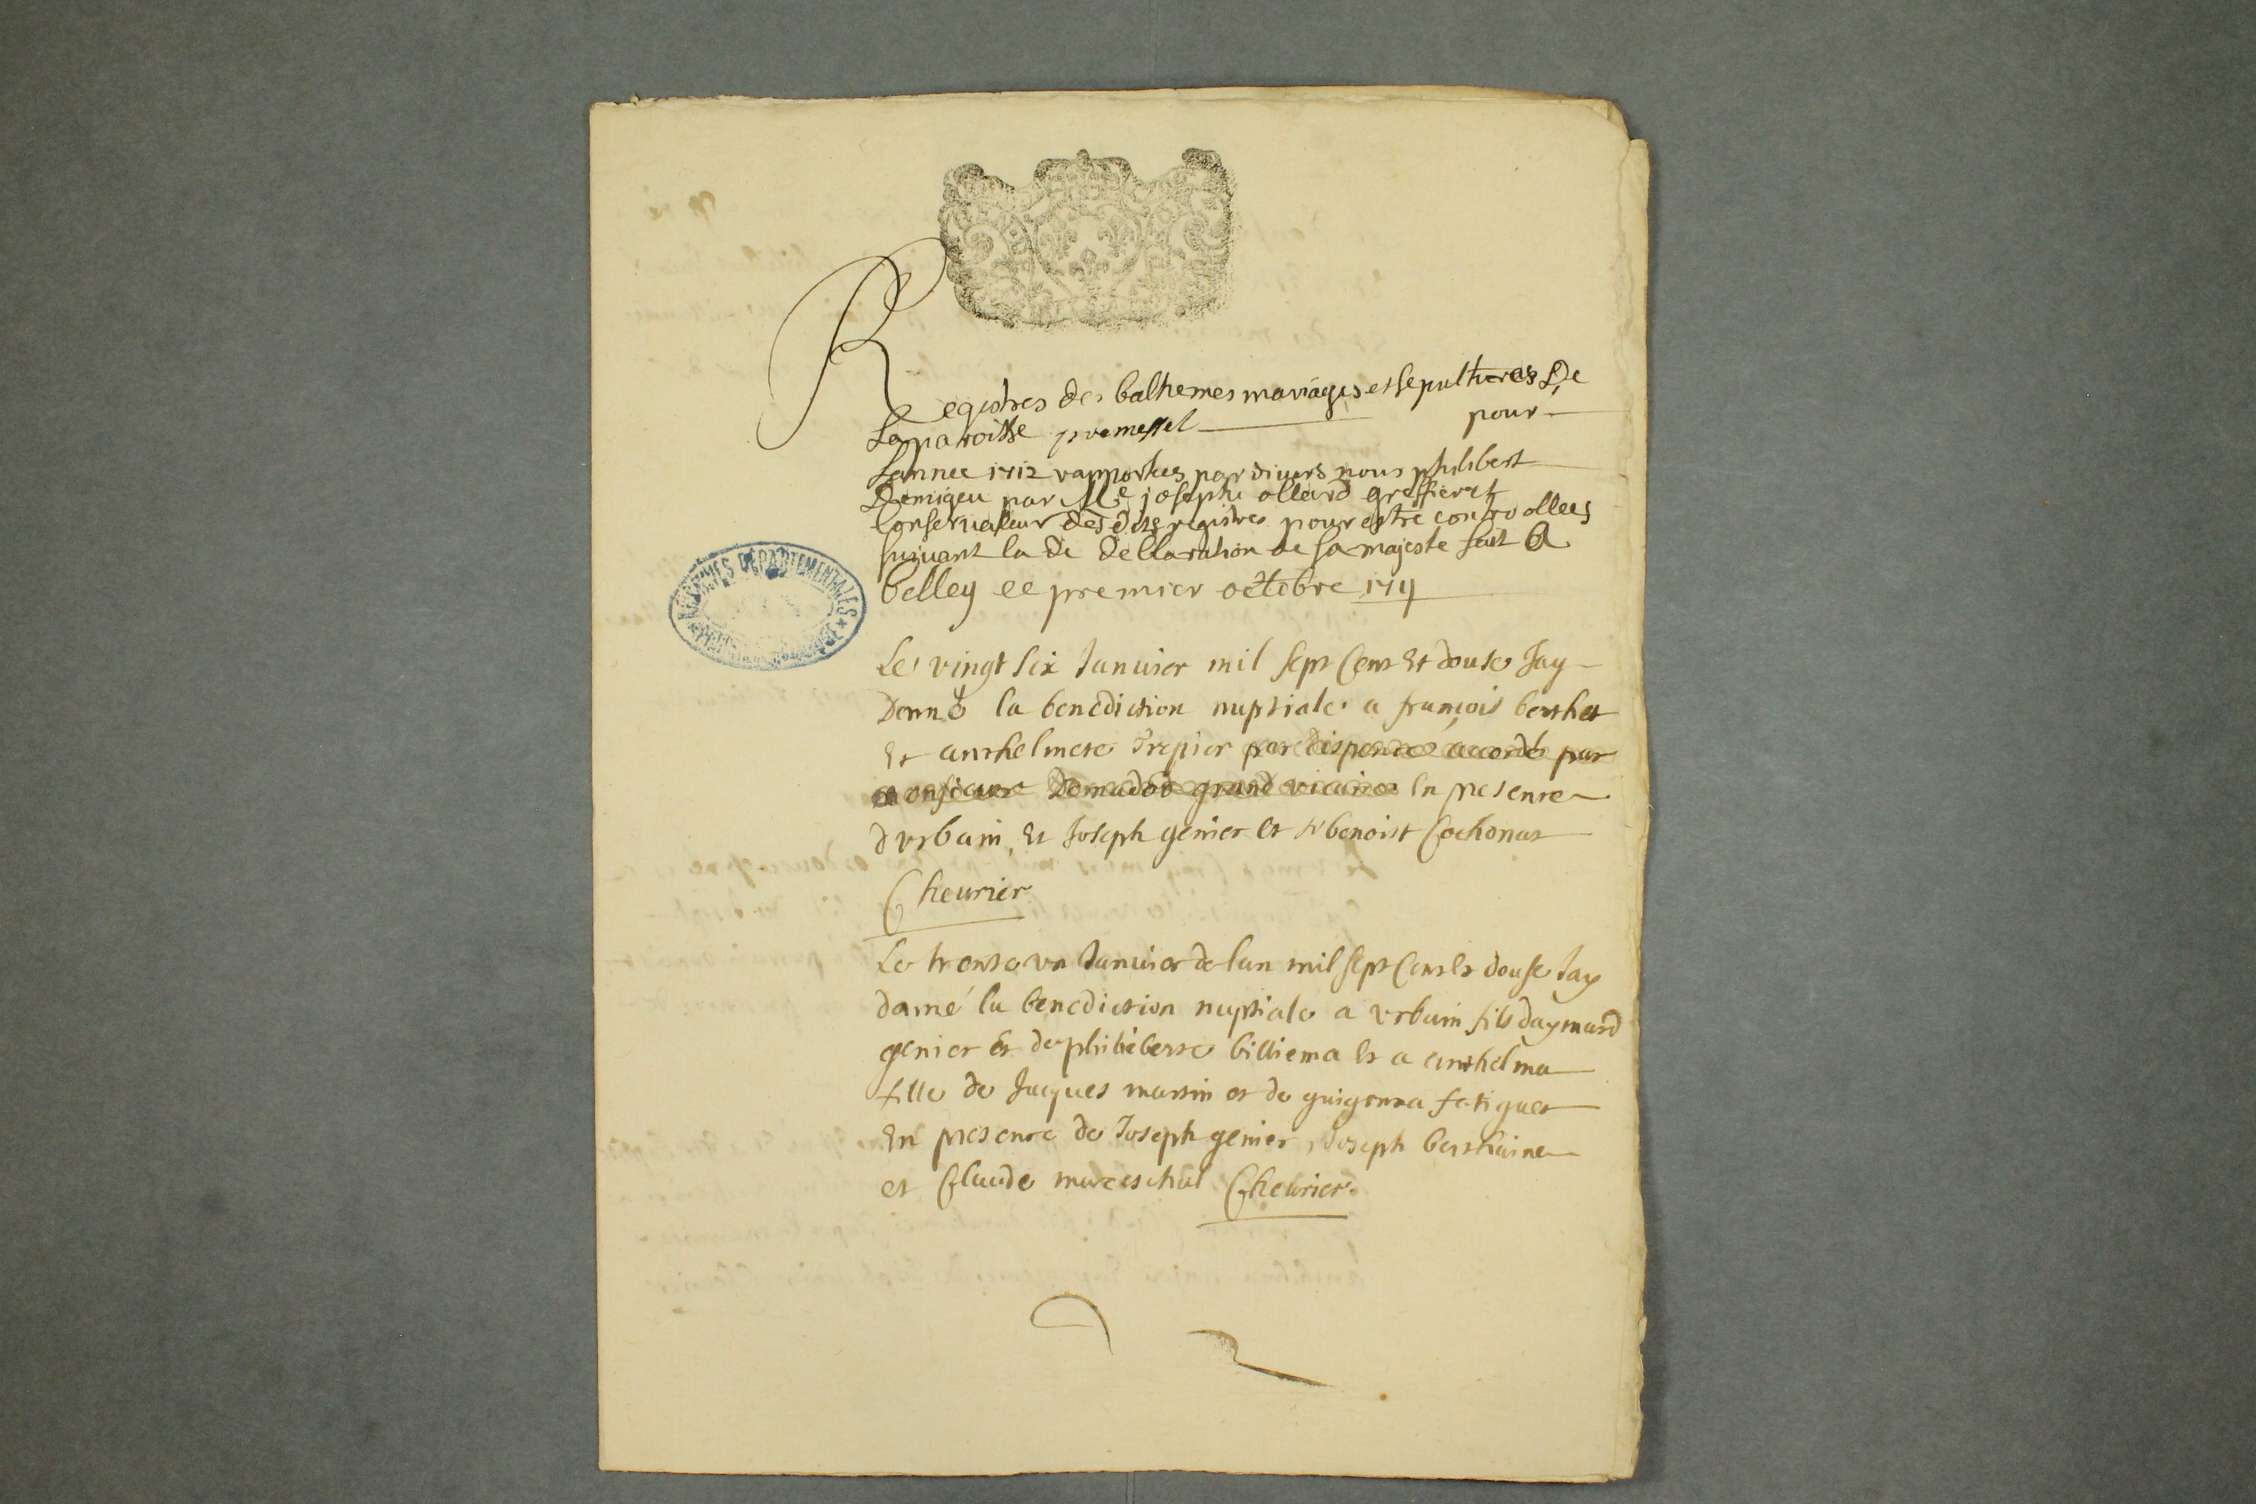 Registres des baltemes mariages et sepultures De
La paroisse premessel pour
Lannee 1712 rapportees par divers nous philibert
Demigeu par Me joseph ollard greffier et
Conservateur des dits registres pour estre controollees
suivant la de dellaration de sa majeste fait A
belley ee premier octobre 1711
ARCHIVES DÉPARTEMENTALES
Le vingt six Januier mil sept Cent et douse Jay
Donné la benediction nuptiale a françois berthet
Et anthelmete Trepier par dispence accordé par
monsieur Demadot grand vicaire En presence
d vrbain, Et Joseph genier et Sr benoist Cochonat
Cheurier
Le trente vn Januier de lan mil sept Cent Et douse Jay
donné la benediction nuptiale a vrbain fils daymard
genier Et de philiberte billiema Et a anthelma
fille de Jaques martin et de guigonna fatiguet
En presence de Joseph genier, Joseph berthaine
et Claude mareschal Cheurier.